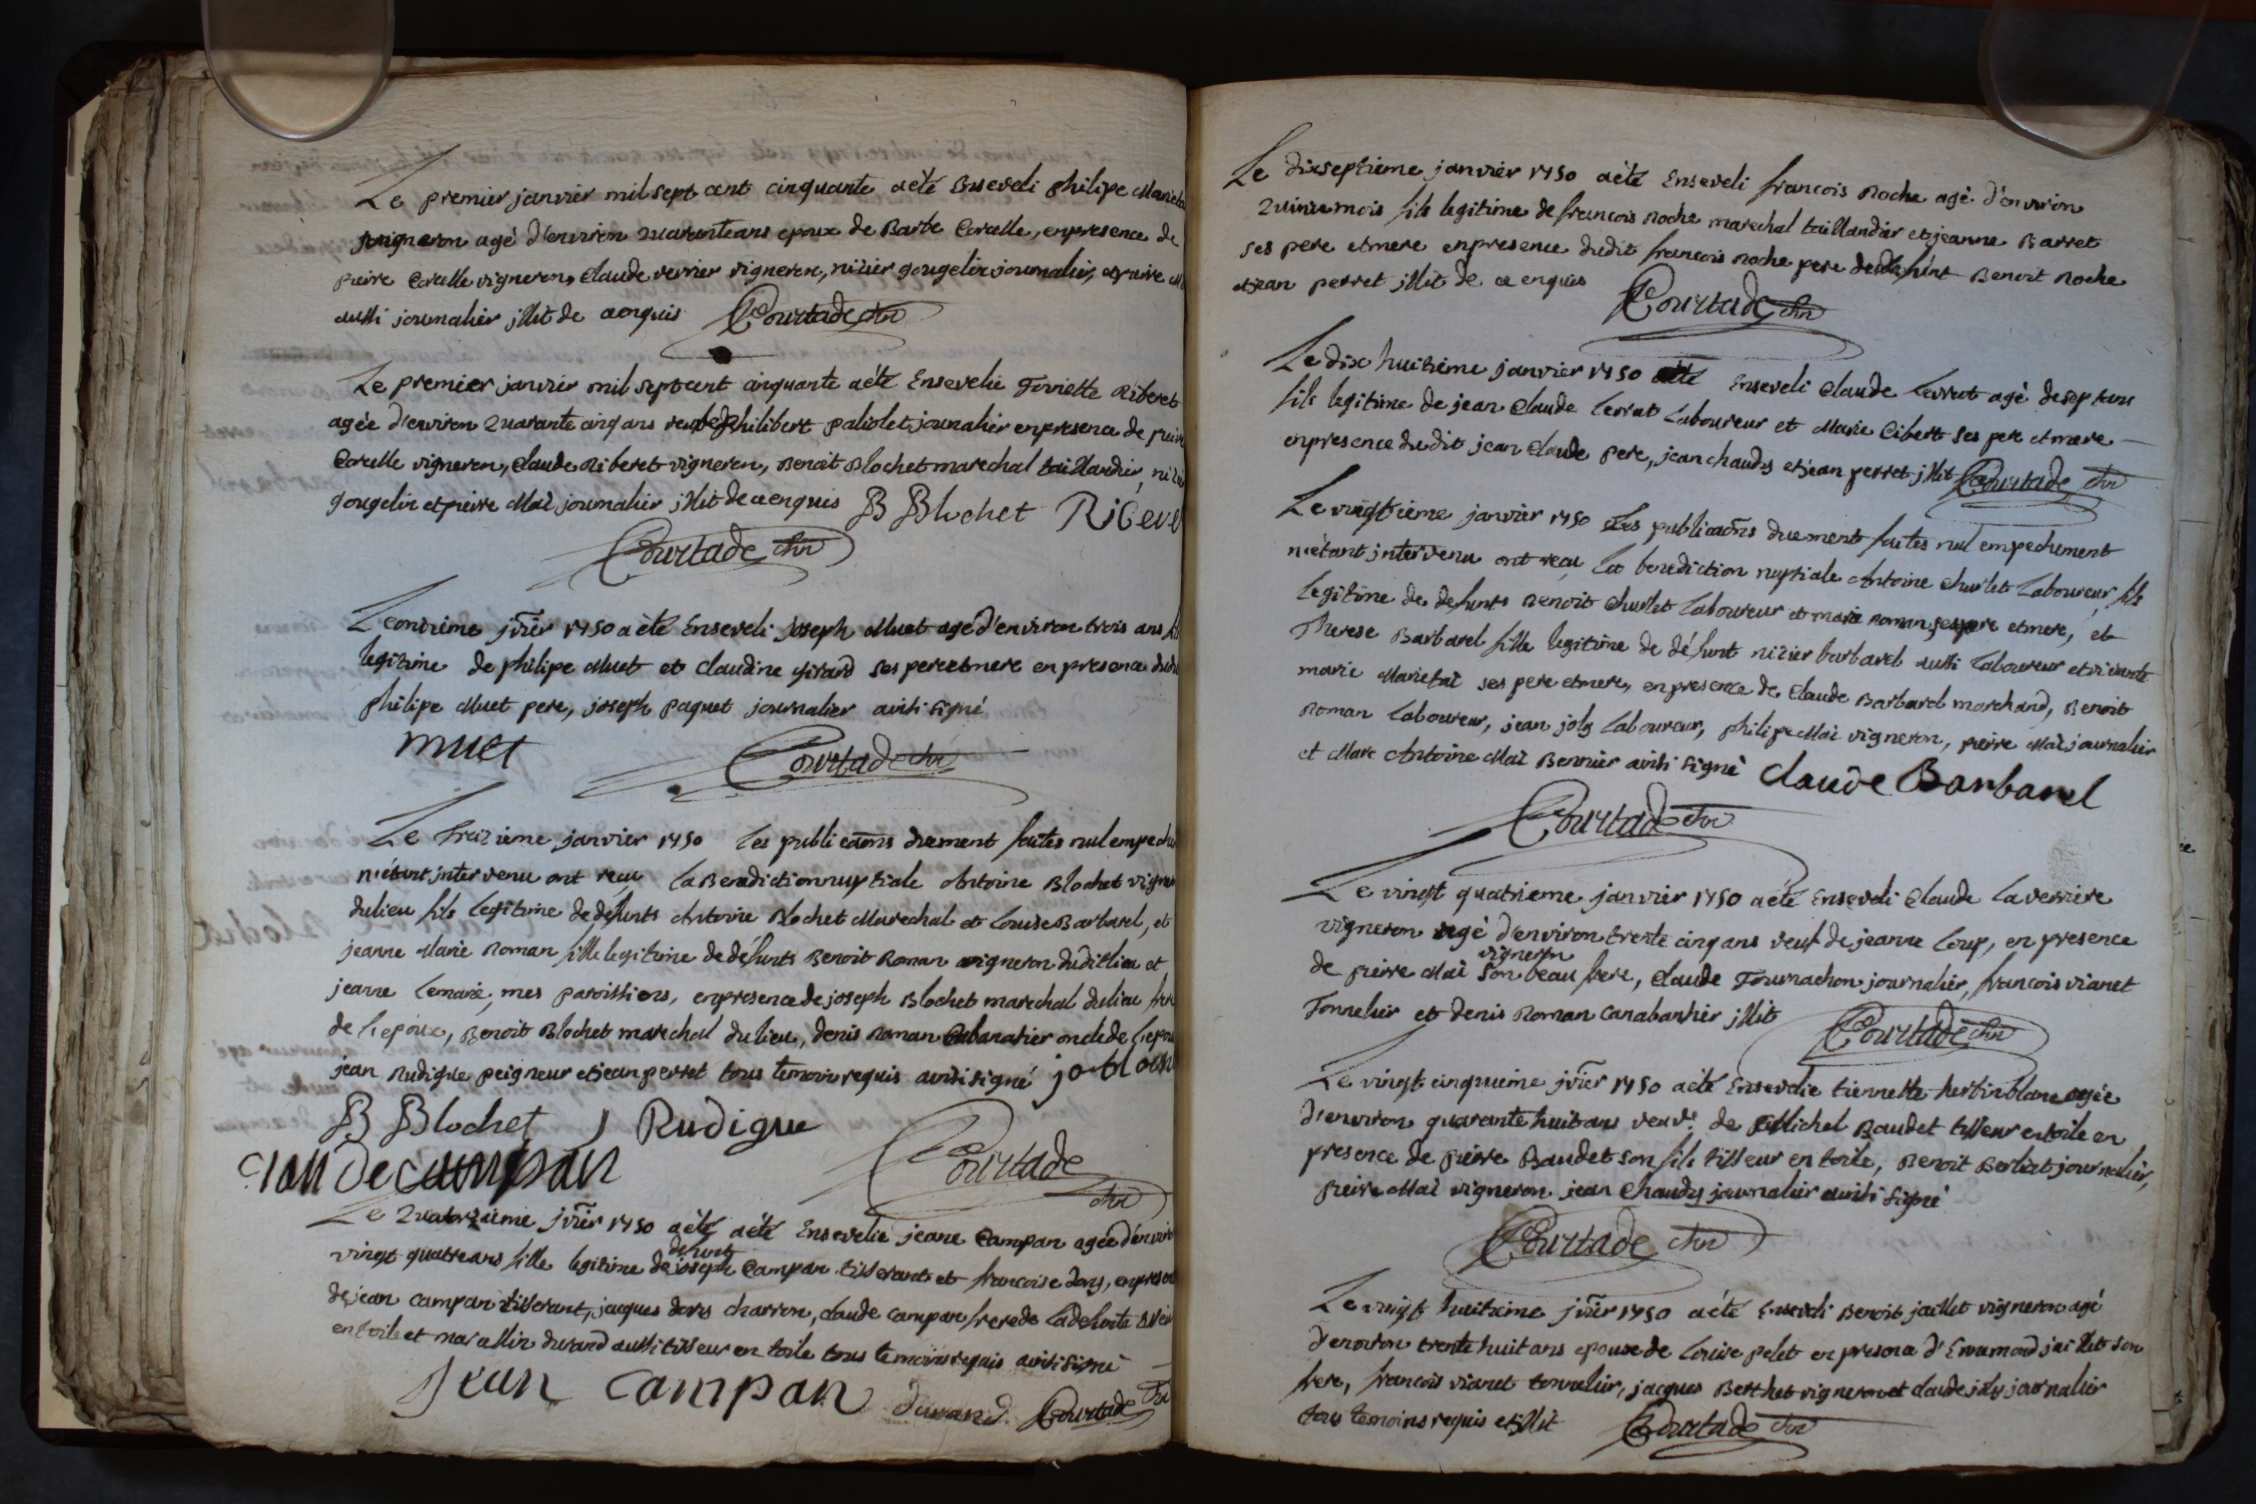 Le premier janvier mil sept cent cinquante aété Enseveli philipe
vigneron agé d'environ quarante ans epoux de Barbe Corcelle, enpresence de
pierre Corcelle vigneron, Claude verrier vigneron, nizier gougelin journalier, et pierre
aussi journalier jllit de cenquis Courtade chn
Le premier janvier mil sept cent cinquante aété Ensevelie Toniette Riberet
agée d'environ quarante cinq ans philibert paliolet journalier enpresence de
Corcelle vigneron, Claude Riberet vigneron, Benoit Blochet marechal taillandier,
gougelin et pierre Maï journalier jllit de cenquis B Blochet
Courtade chn
Le onzieme jvier 1750 a été Enseveli joseph Muet agé d'environ trois ans
legitime de philipe Muet et Claudine girard ses pere et mere en presence
philipe Muet pere, joseph paquet journalier ainsi signé
muet Courtade chn
Le treizieme janvier 1750 Les publicaons duement faites nul
n'etant intervenu ont reçu la Benediction nuptiale Antoine Blochet
dulieu fils legitime de defunts Antoine Blochet Marechal et Louise Barbarel, et
jeanne Marie Roman fille legitime de défunts Benoit Roman vigneron dudit lieu et
jeanne Lemaré, mes paroissiens, enpresence de joseph Blochet marechal dulieu
de l'epoux, Benoit Blochet marechal dulieu, denis Roman Cabanatier oncle de
jean Rudigue peigneur et jean perret tous temoins requis ainsi signé
B Blochet J Rudigue
campan Courtade
chn
Le quatorzieme jvier 1750 aété aété Ensevelie jeane Campan agée
vingt quatre ans fille legitime de defunt joseph Campan tisserant et francoise dory,
de jean campan tisserant, jacques dory charron, claude campan frere de ladefunte
en toile et durand aussi tisseur en toile tous temoins requis ainsi signé
jean campan durand Courtade
Le dixseptieme janvier 1750 aété Enseveli francois Roche agé d'environ
quinze mois fils legitime de francois Roche marechal taillandier et jeanne Barret
ses pere et mere enpresence dudit francois Roche pere Benoit Roche
et jean perret jllit de ce enquis Courtade chn
Le dix huitieme janvier 1750 aété Enseveli Claude Lerrat agé desept ans
fils legitime de jean Claude Lerrat Laboureur et Marie Cibert ses pere et mere
enpresence dudit jean Claude pere, jean chaudy et jean perret jllit Courtade chn
Le vingtieme janvier 1750 Les publicaons duement faites nul empechement
n'etant jntervenu ont reçu La benediction nuptiale Antoine Charlet Laboureur fils
legitime de defunts Benoit Charlet Laboureur et marie roman ses pere et mere, et
Therese Barbarel fille legitime de défunt nizier barbarel aussi laboureur et vivante
marie Marietaï ses pere et mere, enpresence de Claude Barbarel marchand, Benoit
Roman Laboureur, jean joly Laboureur, philipe Maï vigneron, pierre Maï journalier
et Marc Antoine Maï Bennier ainsi signé Claude Barbarel
Courtade chn
Le vingt quatrieme janvier 1750 aété Enseveli Claude Laverriere
vigneron agé d'environ trente cinq ans veuf de jeanne Loup, en presence
de pierre Maï vigneron son beau frere, Claude Tournachon journalier, francois vianet
Tonnelier et denis Roman Canabassier jllit Courtade chn
Le vingt cinquieme jvier 1750 aété Ensevelie tiennette herbinblanc agée
d'environ quarante huit ans veuve de Michel Baudet tisseur en toile en
presence de pierre Baudet son fils tisseur en toile, Benoit Berliat journalier,
pierre Maï vigneron jean Chaudy journalier ainsi signé
Courtade chn
Le vingt huitieme jvier 1750 aété Enseveli Benoit jaillet vigneron agé
d'environ trente huit ans epoux de Louise pelet en presence d'Ennemond jaillet son
frere, francois vianet tonnelier, jacques Berthet vigneron et claude joly journalier
tous temoins requis et jllit Courtade chn